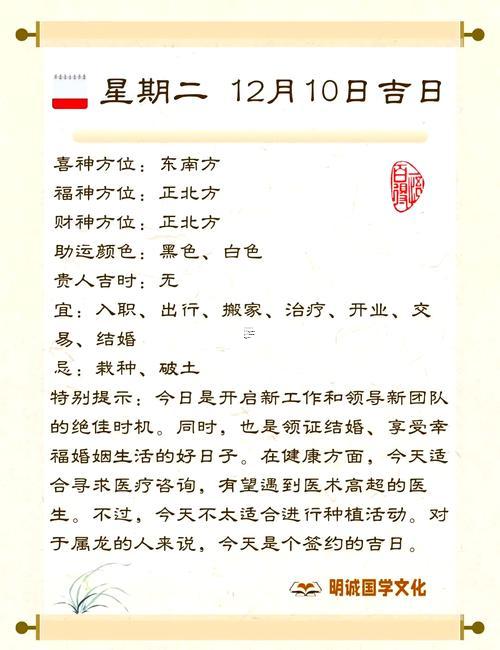 星期二 12月10日吉日
喜神方位：东南方
福神方位：正北方
财神方位：正北方
助运颜色：黑色、白色
贵人吉时：无
宜：入职、出行、搬家、治疗、开业、交
易、结婚
忌：栽种、破土
特别提示：今日是开启新工作和领导新团队
的绝佳时机。同时，也是领证结婚、享受幸
福婚姻生活的好日子。在健康方面，今天适
合寻求医疗咨询，有望遇到医术高超的医
生。不过，今天不太适合进行种植活动。对
于属龙的人来说，今天是个签约的吉日。
明诚国学文化